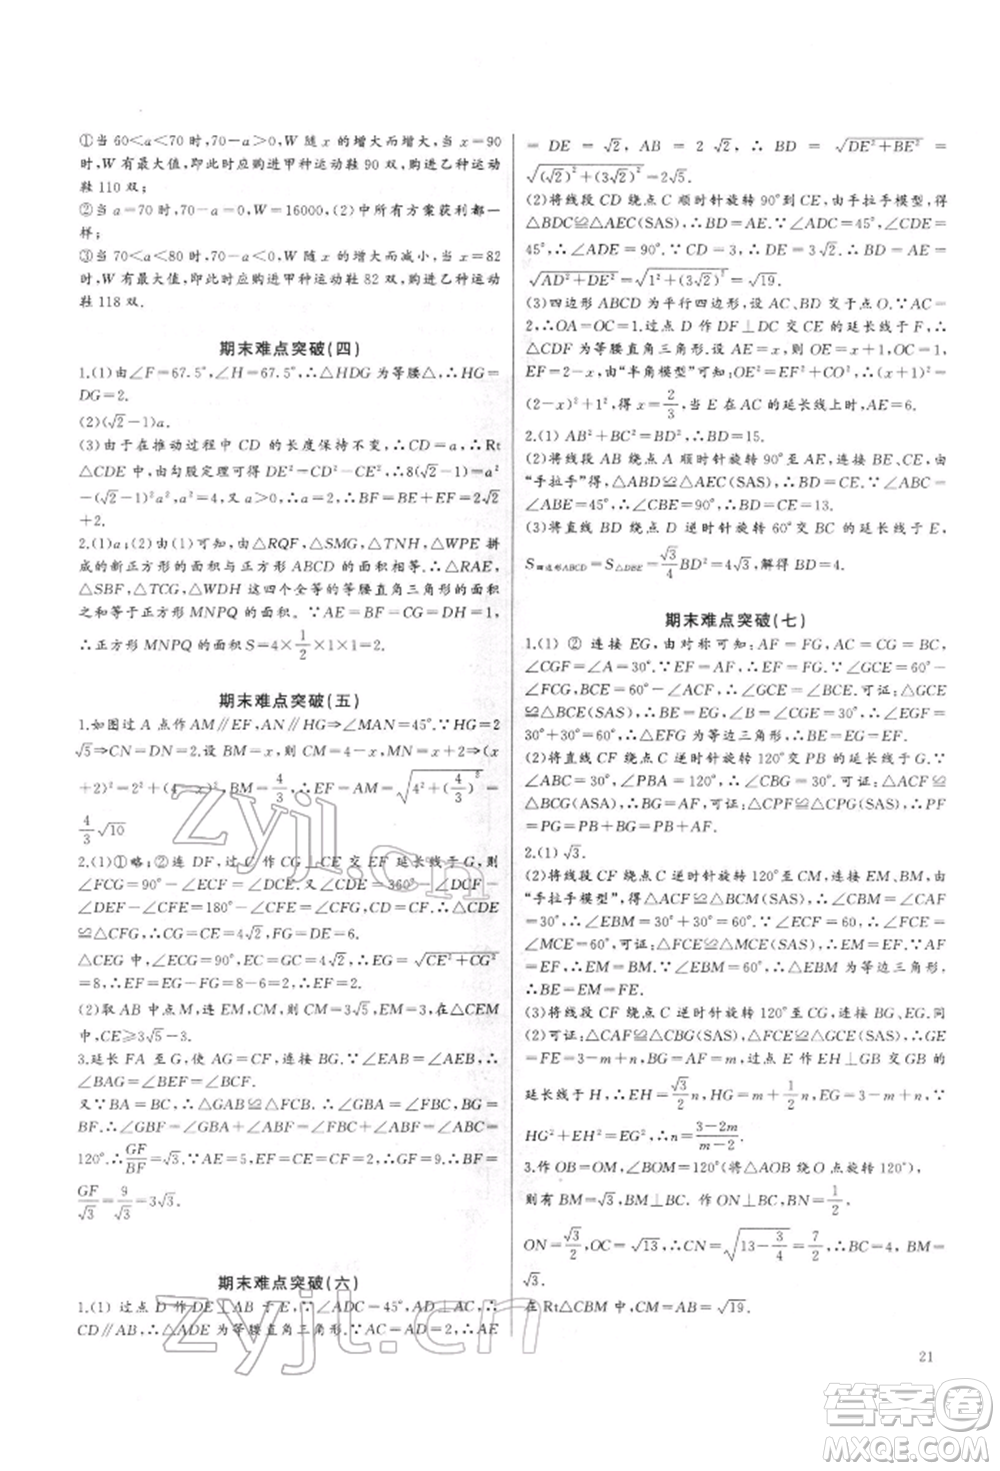 ①当 60<a<70 时,70-a>0,W 随 x 的增大而增大,当 x=90
时,W 有最大值,即此时应购进甲种运动鞋 90 双,购进乙种运动
鞋 110 双;
②当 a=70 时,70-a=0,W=16000,(2)中所有方案获利都一
样;
③当 70<a<80 时,70-a<0,W 随 x 的增大而减小,当 x=82
时,W 有最大值,即此时应购进甲种运动鞋 82 双,购进乙种运动
鞋 118 双.
期末难点突破(四)
1.(1)由∠F=67.5°,∠H=67.5°,∴△HDG 为等腰△,∴HG=
DG=2.
(2)(√2-1)a.
(3)由于在推动过程中 CD 的长度保持不变,∴CD=a,∴Rt
△CDE 中,由勾股定理可得 DE²=CD²-CE²,∴8(√2-1)=a²
-(√2-1)²a²,又 a>0,∴a=2,∴BF=BE+EF=2√2
+2.
2.(1)a;(2)由(1)可知,由△RQF,△SMG,△TNH,△WPE 拼
成的新正方形的面积与正方形 ABCD 的面积相等.∴△RAE,
△SBF,△TCG,△WDH 这四个全等的等腰直角三角形的面积
之和等于正方形 MNPQ 的面积. ∵AE=BF=CG=DH=1,
∴正方形 MNPQ 的面积 S=4×1/2×1×1=2.
期末难点突破(五)
1.如图过 A 点作 AM∥EF,AN∥HG⇒∠MAN=45°.∵HG=2
√5⇒CN=DN=2.设 BM=x,∴CM=4-x,MN=x+2⇒(x
+2)²=(2)²+(4-x)²,BM=4/3,∴EF=AM=√(4²+(4/3)²)=
4/3√10
2.(1)①略;②连 DF,过 C 作 CG⊥CE 交 EF 延长线于 G,则
∠FCG=90°-∠FCE=∠DCE.又∵∠CDE=360°-∠DCF
-∠DEF-∠CFE=180°-∠CFE=∠CFG,∴△CDE
≌△CFG,∴CG=CE=4√2,GF=DE=6.
△CEG 中,∠ECG=90°,EC=GC=4√2,∴EG=√(CE²+CG²)
=8,∴EF=EG-FG=8-6=2.
(2)取 AB 中点 M,连 EM,CM,∴CM=3√5,EM=3,在△CEM
中,CE≥3√5-3.
3.延长 FA 至 G,使 AG=CF,连接 BG.∵∠AEF=∠AEB,∴
∠BAG=∠BEF=∠BCF.
又∵BA=BC,∴△GAB≌△FCB,∴∠GBA=∠FBC,BG=BF.
∵∠ABF+∠FBC=120°,∴∠ABF+∠GBA=120°,∴∠GBF=
120°.∴GF/BF=√3.∵AE=5,CF=AG=4,∴GF=9,∴BF=
GF/√3=9/√3=3√3.
期末难点突破(六)
1.(1) 过点 D 作 DE⊥AB 于 E,∵∠ADC=45°,AC⊥AD,∴
CD∥AB,∴△ADE 为等腰直角三角形.∵AC=AD=2,∴AE
= DE = √2, AB = 2 √2, ∴ BD = √(DE²+BE²) =
√((√2)²+(3√2)²)=2√5.
(2)将线段 CD 绕点 C 顺时针旋转 90°到 CE,由手拉手模型,得
△BDC≌△AEC(SAS),∴BD=AE.∵∠ADC=45°,∠CDE=
45°,∴∠ADE=90°.∵CD=3,∴DE=3√2,∴BD=AE=
√(AD²+DE²)=√(1²+(3√2)²)=√19.
(3)四边形 ABCD 为平行四边形,设 AC、BD 交于点 O.∵AC=
2,∴OA=OC=1.过点 D 作 DF⊥DC 交 CE 的延长线于 F,则
△CDF 为等腰直角三角形,∴CF=2,设 OE=x,∴CE=x+1,
EF=2-x,由“半角模型”可知,BD=2,∴CO=1,∴(x+1)²=
(2-x)²+1²,得 x=2/3,当 E 在 AC 的延长线上时,AE=6.
2.(1) AB²+BC²=BD²,∴BD=15.
(2)将线段 BA 绕点 A 顺时针旋转 90°,得 AE,连 BE,CE,由
“手拉手”得,△ABD≌△AEC(SAS),∴BD=CE,∵∠ABC=
∠ABE=45°,∴∠CBE=90°,∴BD=CE=13.
(3)将直线 BD 绕点 D 逆时针旋转 60°交 BC 的延长线于 E,
S四边形ABCD=S△DBE=√3/4BD²=4√3,解得 BD=4.
期末难点突破(七)
1.(1) ② 连接 EG,由对称可知:AF=FG,AC=CG=BC,
∠CGF=∠A=30°,∴∠FGB=60°,∠ACF=∠FCG.可证:△GCE
≌△BCE(SAS),∴BE=EG,∠B=∠CGE=30°,∴∠FGE=
30°+30°=60°,∴△EFG 为等边三角形,∴EF=AF=BE.
(2)将直线 CF 绕点 C 逆时针旋转 120°交 PB 的延长线于 G.
∵∠ABE=30°,∠PBA=90°,∴∠CBG=60°.可证:△AFC≌
△BCG(ASA),∴AF=BG.可证:△CPF≌△CPG(SAS),∴PF
=PG=PB+BG=PB+AF.
2.(1) √3.
(2)将线段 CF 绕点 C 逆时针旋转 120°得 CM,连接 BM,EM,由
“手拉手模型”,可得△ACF≌△BCM(SAS),∴∠CBM=∠CAF
=30°,∴∠EBM=30°+30°=60°.又∵∠FCE=60°,∴∠FCE=
∠MCE=60°,∴△FCE≌△MCE(SAS),∴EM=EF=BE,又∵
∠EBM=60°,∴△EBM 为等边三角形,
∴EF=EM=BM=AF.
(3)将线段 CF 绕点 C 逆时针旋转 120°至 CG,连接 BG、EG.同
(2)可证:△CAF≌△CBG(SAS),△FCE≌△GCE(SAS),∴GE
=FE=3-m+n,AF=GB=m,过点 E 作 EH⊥GB 交 GB 的
延长线于 H,∴EH=√3/2n,HB=1/2n,∴HG=m+1/2n,∴
HG²+EH²=EG²,∴n=(3-2m)/(m-2).
3.作 OB=OM,∠BOM=120°(将△AOB 绕 O 点旋转 120°),
则有 BM=√3,BM⊥BC. 作 ON⊥BC,BN=1/2,
ON=√3/2,OC=√13,∴CN=√(13-3/4)=7/2,∴BC=4,BM=
√3.
在 Rt△CBM 中,CM=√19.
21
答案圈
MXQE.COM
zyjl.cn
zyjl.cn